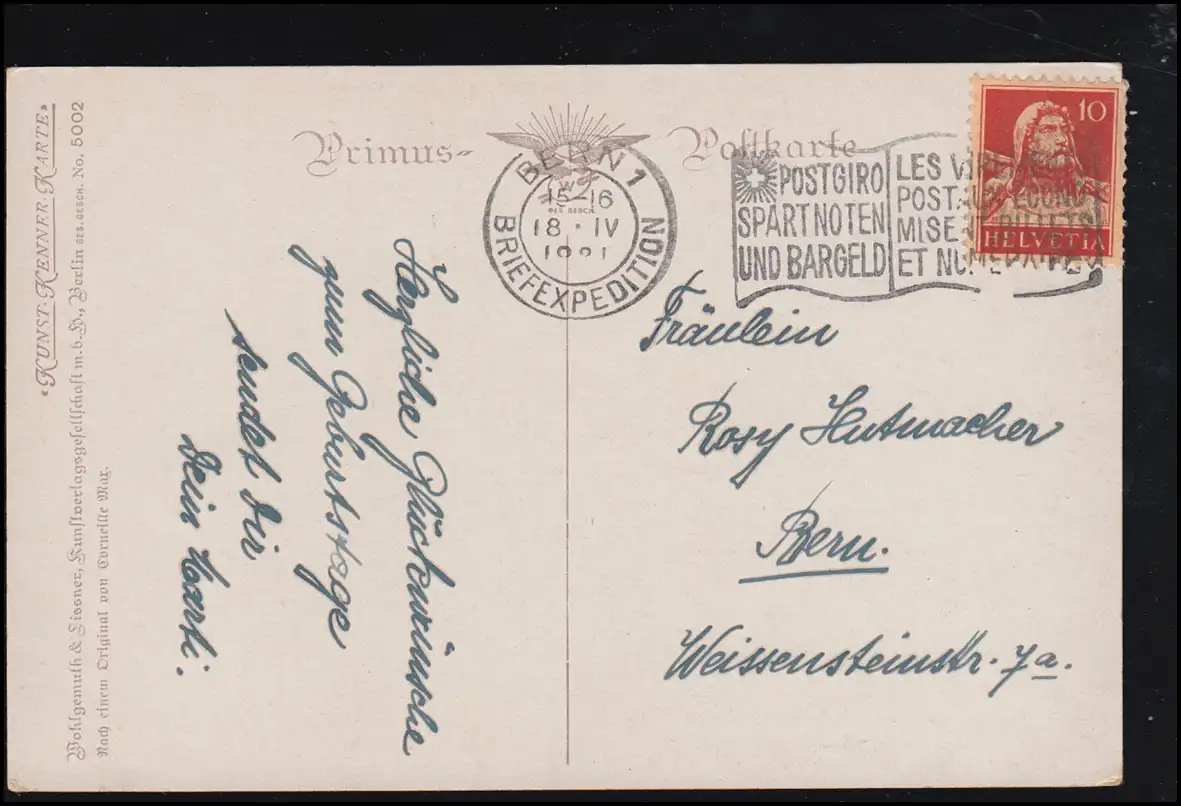 «KUNST-KENNER-KARTE»
Wohlgemuth & Lissner, Kunstverlagsgesellschaft m.b.H., Berlin GES. GESCH. No. 5002
Nach einem Original von Corneille Max.
Primus- Postkarte
W
GES. GESCH.
BERN 1
15-16
18·IV
BRIEFEXPEDITION
POSTGIRO
SPART NOTEN
UND BARGELD
LES
POSTAUX
ET
10
HELVETIA
Herzliche Glückwünsche
zum Geburtstage
sendet Dir
Dein
Fräulein
Rosy Hutmacher
Bern.
Weissensteinstr. 7a.